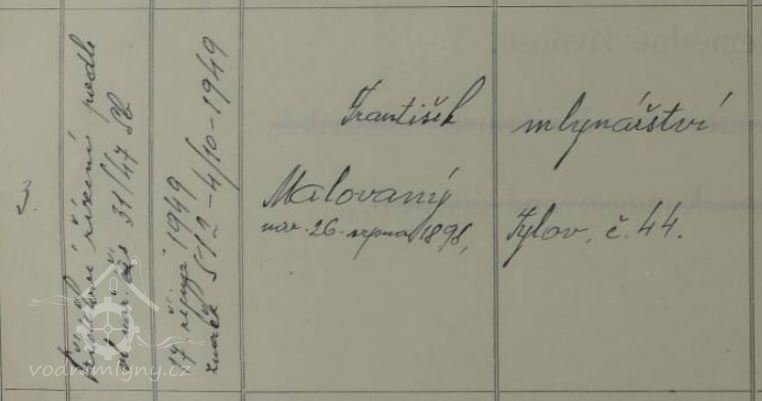 3.
řízení podle
vl. nař. čís 31/47 Sb
17. října 1949
značk 512-4/10-1949
František
Malovaný
nar. 26. srpna 1898,
mlynářství
Tylov, č. 44.
vodnimlyny.cz